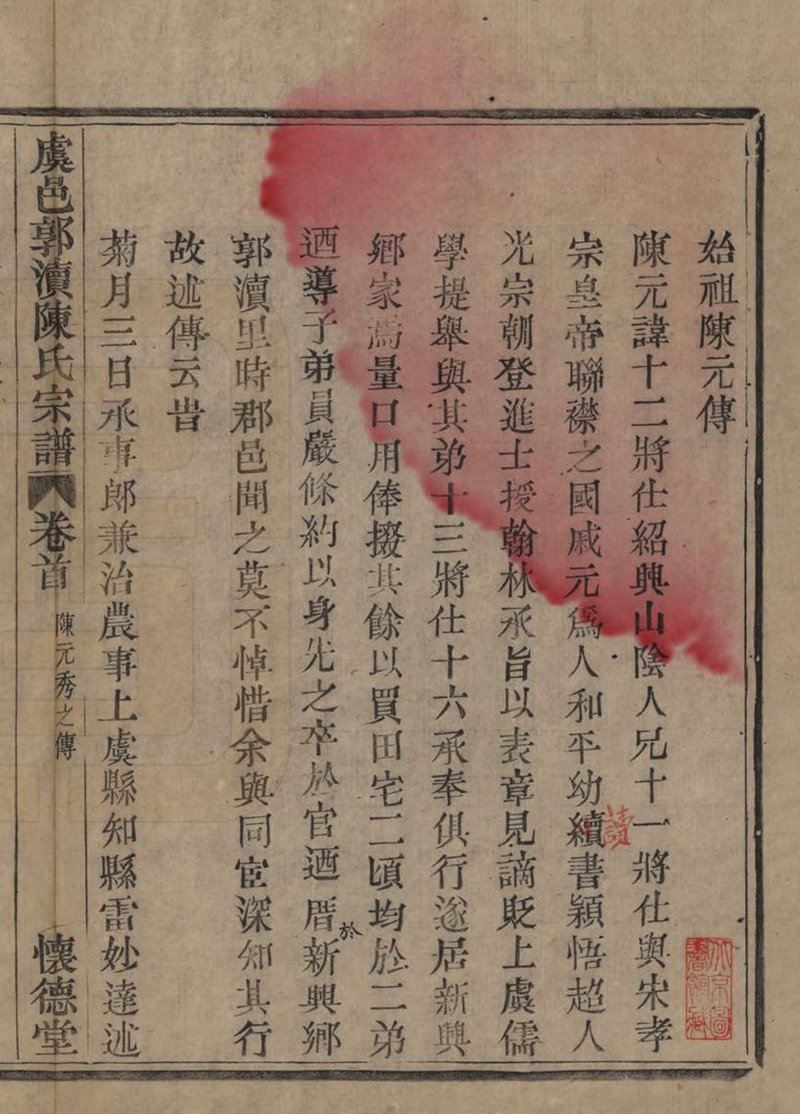 始祖陳元傳
陳元諱十二將仕紹興山陰人兄十一將仕與宋孝
宗皇帝聯襟之國戚元爲人和平幼續書穎悟超人
讀
光宗朝登進士授翰林承旨以表章見謫貶上虞儒
學提舉與其弟十三將仕十六承奉俱行遂居新興
鄉家焉量口用俸掇其餘以買田宅二頃均於二弟
迺導子弟員嚴條約以身先之卒於官迺厝於新興鄉
郭瀆里時郡邑聞之莫不悼惜余與同宦深知其行
故述傳云旹
菊月三日承事郎兼治農事上虞縣知縣雷妙達述
虞邑郭瀆陳氏宗譜 卷首 陳元秀之傳 懷德堂